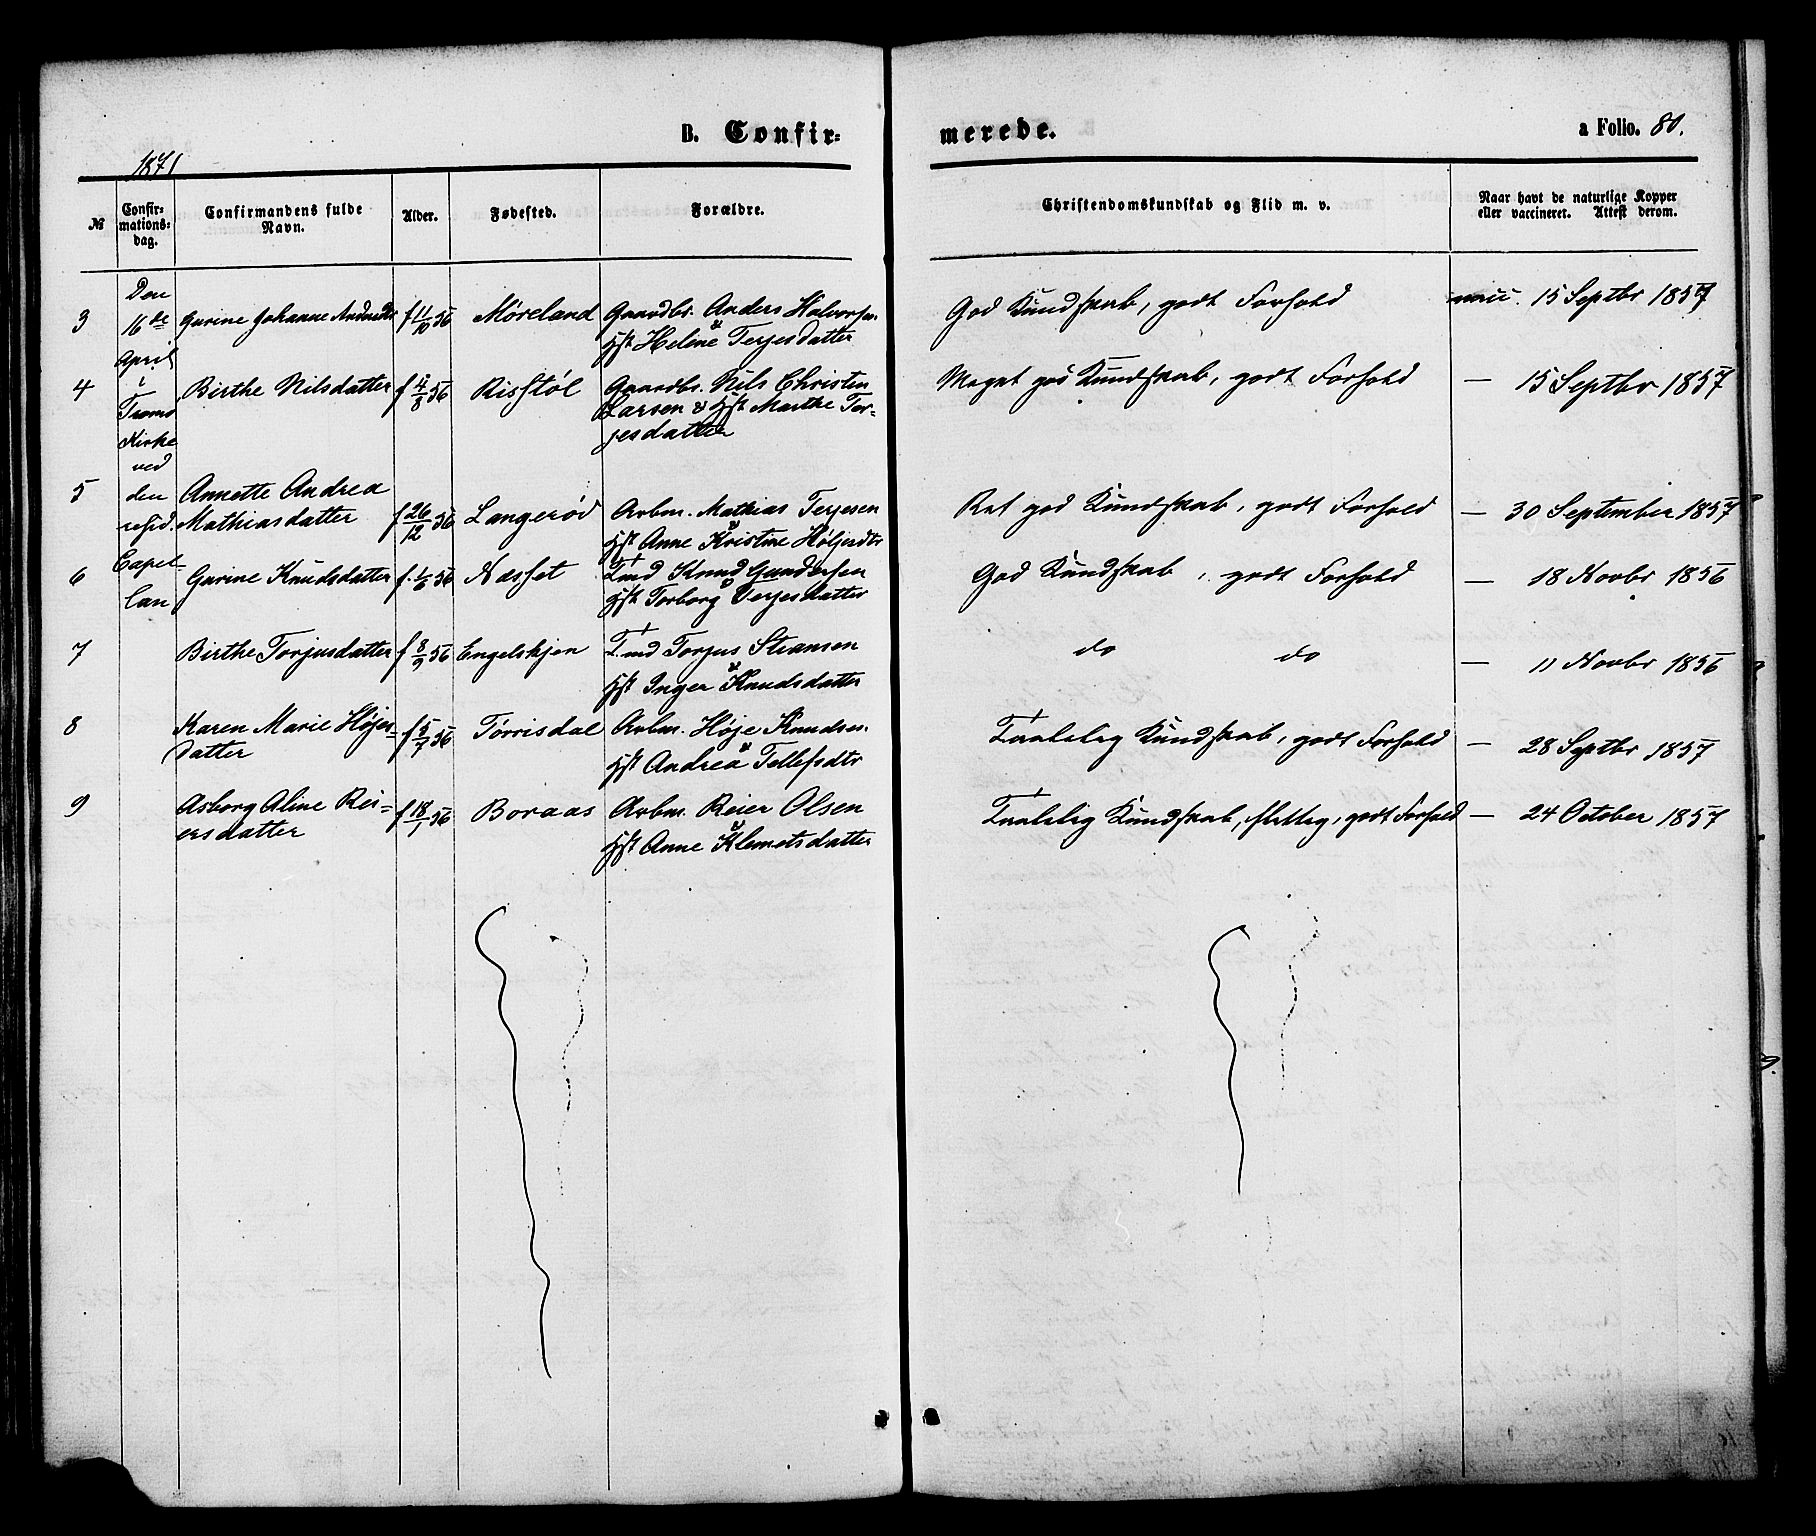 B. Confir=
merede.
a Folio. 80.
1871
№
Confir=
mations=
dag.
Confirmandens fulde
Navn.
Alder.
Fødested.
Forældre.
Christendomskundskab og Flid m. v.
Naar havt de naturlige Kopper
eller vaccineret. Attest derom.
Den
16de
April
i
Tromø
Kirke
ved
den
resid.
Capel-
lan
3 Gurine Johanne Andersdtr f 11/10 56 Møreland Gaardbr. Anders Halvorsen
& Hst Helene Terjesdatter
God Kundskab, godt Forhold vacc. 15 Septbr 1857
4 Birthe Nilsdatter f 4/8 56 Risstøl Gaardbr. Nils Christen
Larsen & Hst Marthe Ter=
jesdatter
Meget god Kundskab, godt Forhold — 15 Septbr 1857
5 Annette Andrea
Mathiasdatter f 26/12 56 Langerød Arbm. Mathias Terjesen
& Hst Anne Kristine Høljesdtr
Ret god Kundskab, godt Forhold — 30 September 1857
6 Gurine Knudsdatter f. 1/6 56 Næsset Knud Gundersen
& Hst Torborg Terjesdatter
God Kundskab, godt Forhold — 18 Novbr 1856
7 Birthe Torjusdatter f 8/9 56 Engelskjøn Torjus
& Hst Inger Knudsdatter
do do — 11 Novbr 1856
8 Karen Marie Højes=
datter f 5/7 56 Tørrisdal Arbm. Høje Knudsen
& Hst Andrea Tellefsdtr
Taalelig Kundskab, godt Forhold — 28 Septbr 1857
9 Asborg Aline Rei=
ersdatter f 18/1 56 Boraas Arbm. Reier Olsen
& Hst Anne Klemetsdatter
Taalelig Kundskab, flittig, godt Forhold — 24 October 1857